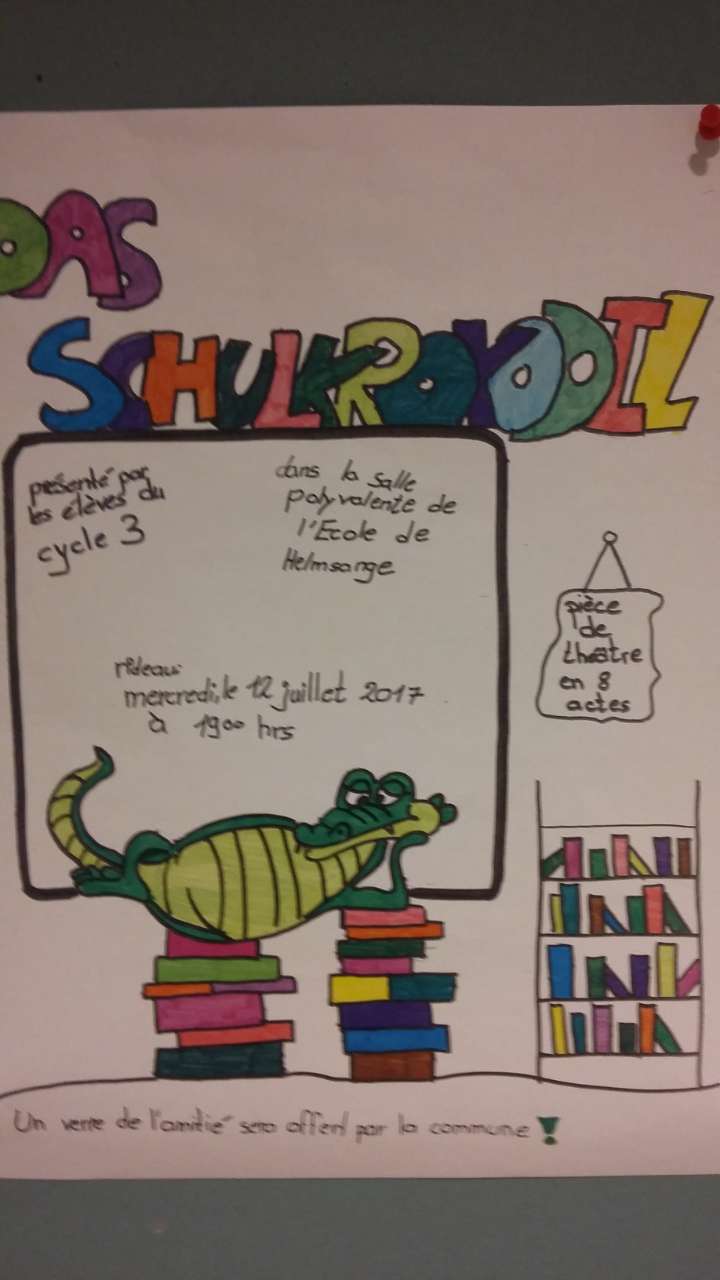 DAS
SCHULKROKODIL
présenté par
les élèves du
cycle 3
dans la salle
polyvalente de
l'Ecole de
Helmsange
rideau:
mercredi, le 12 juillet 2017
à 19⁰⁰ hrs
pièce
de
théatre
en 8
actes
Un verre de l'amitié sera offert par la commune !